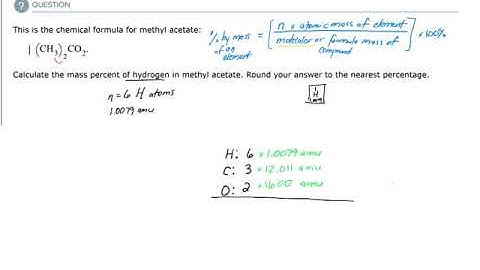 ? QUESTION
This is the chemical formula for methyl acetate:
% by mass of an element = [n × atomic mass of element / molecular or formula mass of compound] × 100%
1 (CH₃)₂CO₂.
Calculate the mass percent of hydrogen in methyl acetate. Round your answer to the nearest percentage.
n = 6 H atoms
1.0079 amu
1
H
1.0079
H: 6 × 1.0079 amu
C: 3 × 12.011 amu
O: 2 × 16.00 amu